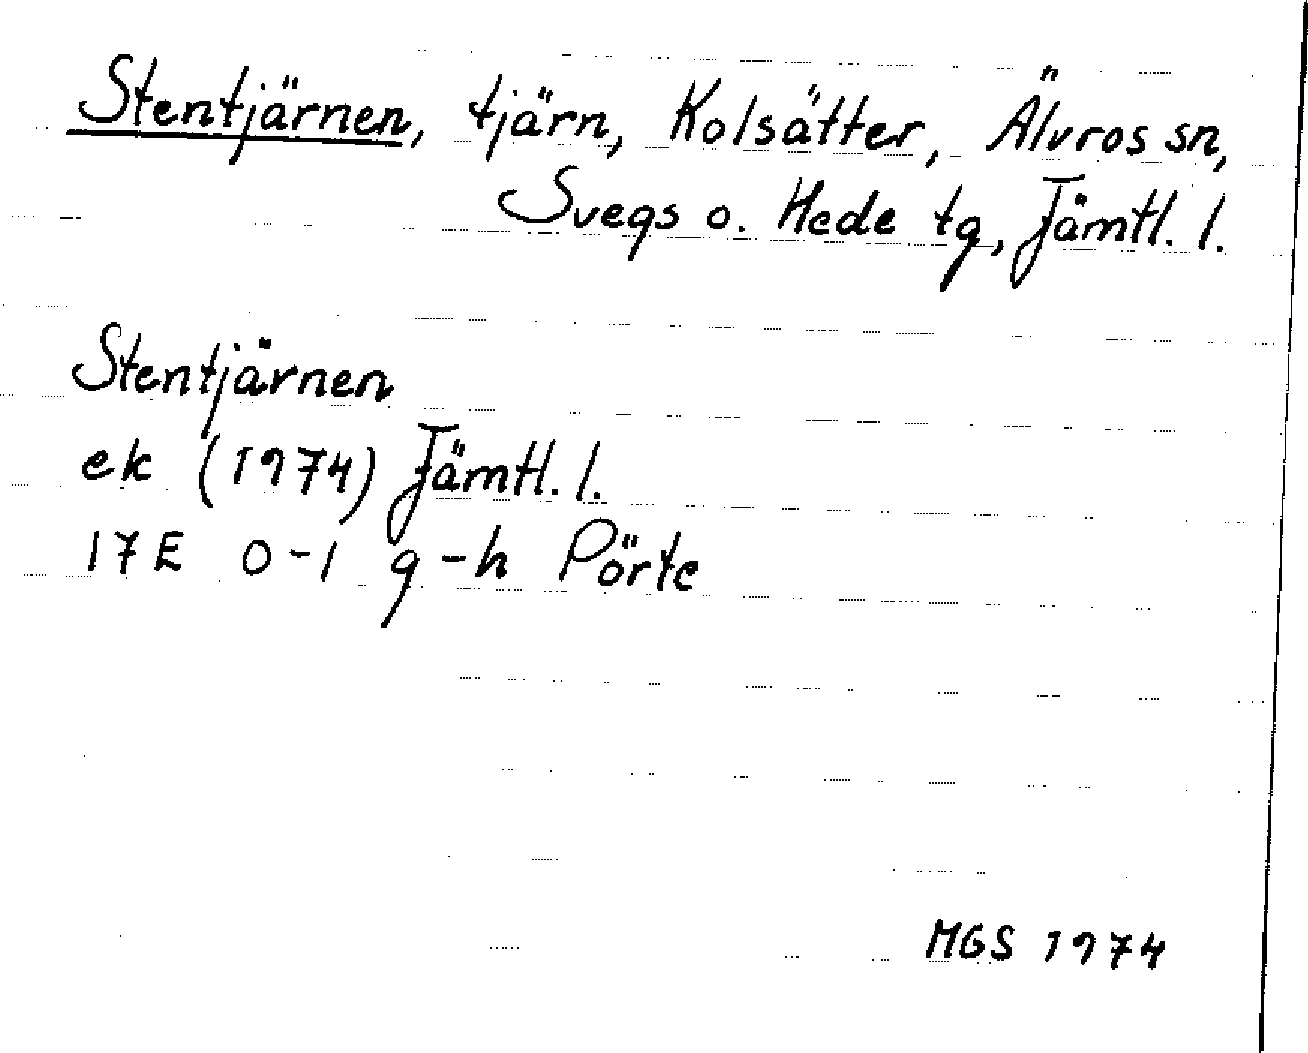 Stentjärnen, tjärn, Kolsätter, Älvros sn,
Svegs o. Hede tg, Jämtl. l.
Stentjärnen
ek (1974) Jämtl. l.
17E 0-1 g-h Pörte
MGS 1974